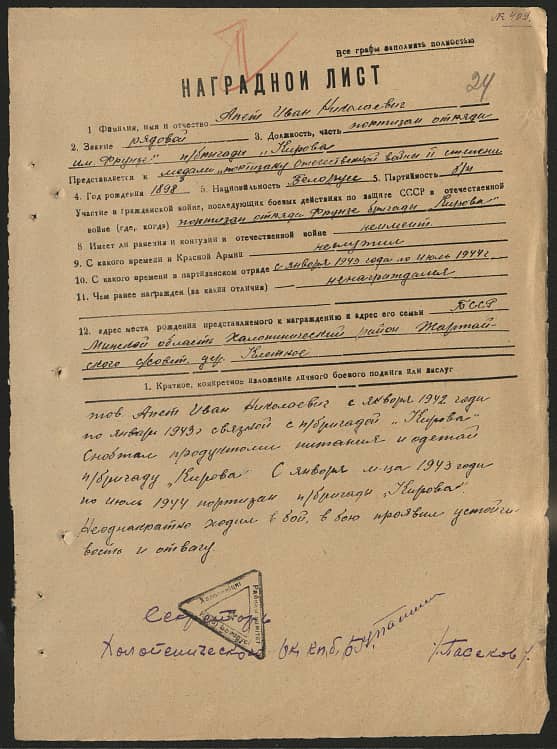 № 409.
Все графы заполнить полностью
НАГРАДНОЙ ЛИСТ
24
1 Фамилия, имя и отчество Апет Иван Николаевич
2. Звание рядовой 3. Должность, часть портизан отряда
им. Фрунзе п/бригади "Кирова"
Представляется к медали "портизану отечественной войни II степени
4. Год рождения 1898 5. Национальность Белорус 5. Партийность б/п
Участие в гражданской войне, последующих боевых действиях по защите СССР в отечественной
войне (где, когда) портизан отряда Фрунзе бригади "Кирова"
8. Имеет ли ранения и контузии в отечественной войне неимеит
9. С какого времени в Красной Армии неслужил
10. С какого времени в партизанском отряде с января 1943 года по июль 1944 г.
11. Чем ранее награжден (за какии отличия) ненаграждался
12. адрес места рождения представляемого к награждению и адрес его семьи БССР
Минской область Холопинический район Жартай-
ского с/совет. дер. Клетное
1. Краткое, конкретное изложение личного боевого подвига или заслуг
тов. Апет Иван Николаевич с января 1942 годи
по январь 1943 г связной с п/бригадой "Кирова"
Снобтал продуктоми питания и одетой
п/бригаду "Кирова" С января м-ца 1943 годи
по июль 1944 портизан п/бригади "Кирова"
Неоднакратно ходил в бой, в бою проявил устойчи-
вость и отвагу.
Секретарь
Холопеничского РК КП(б)Б